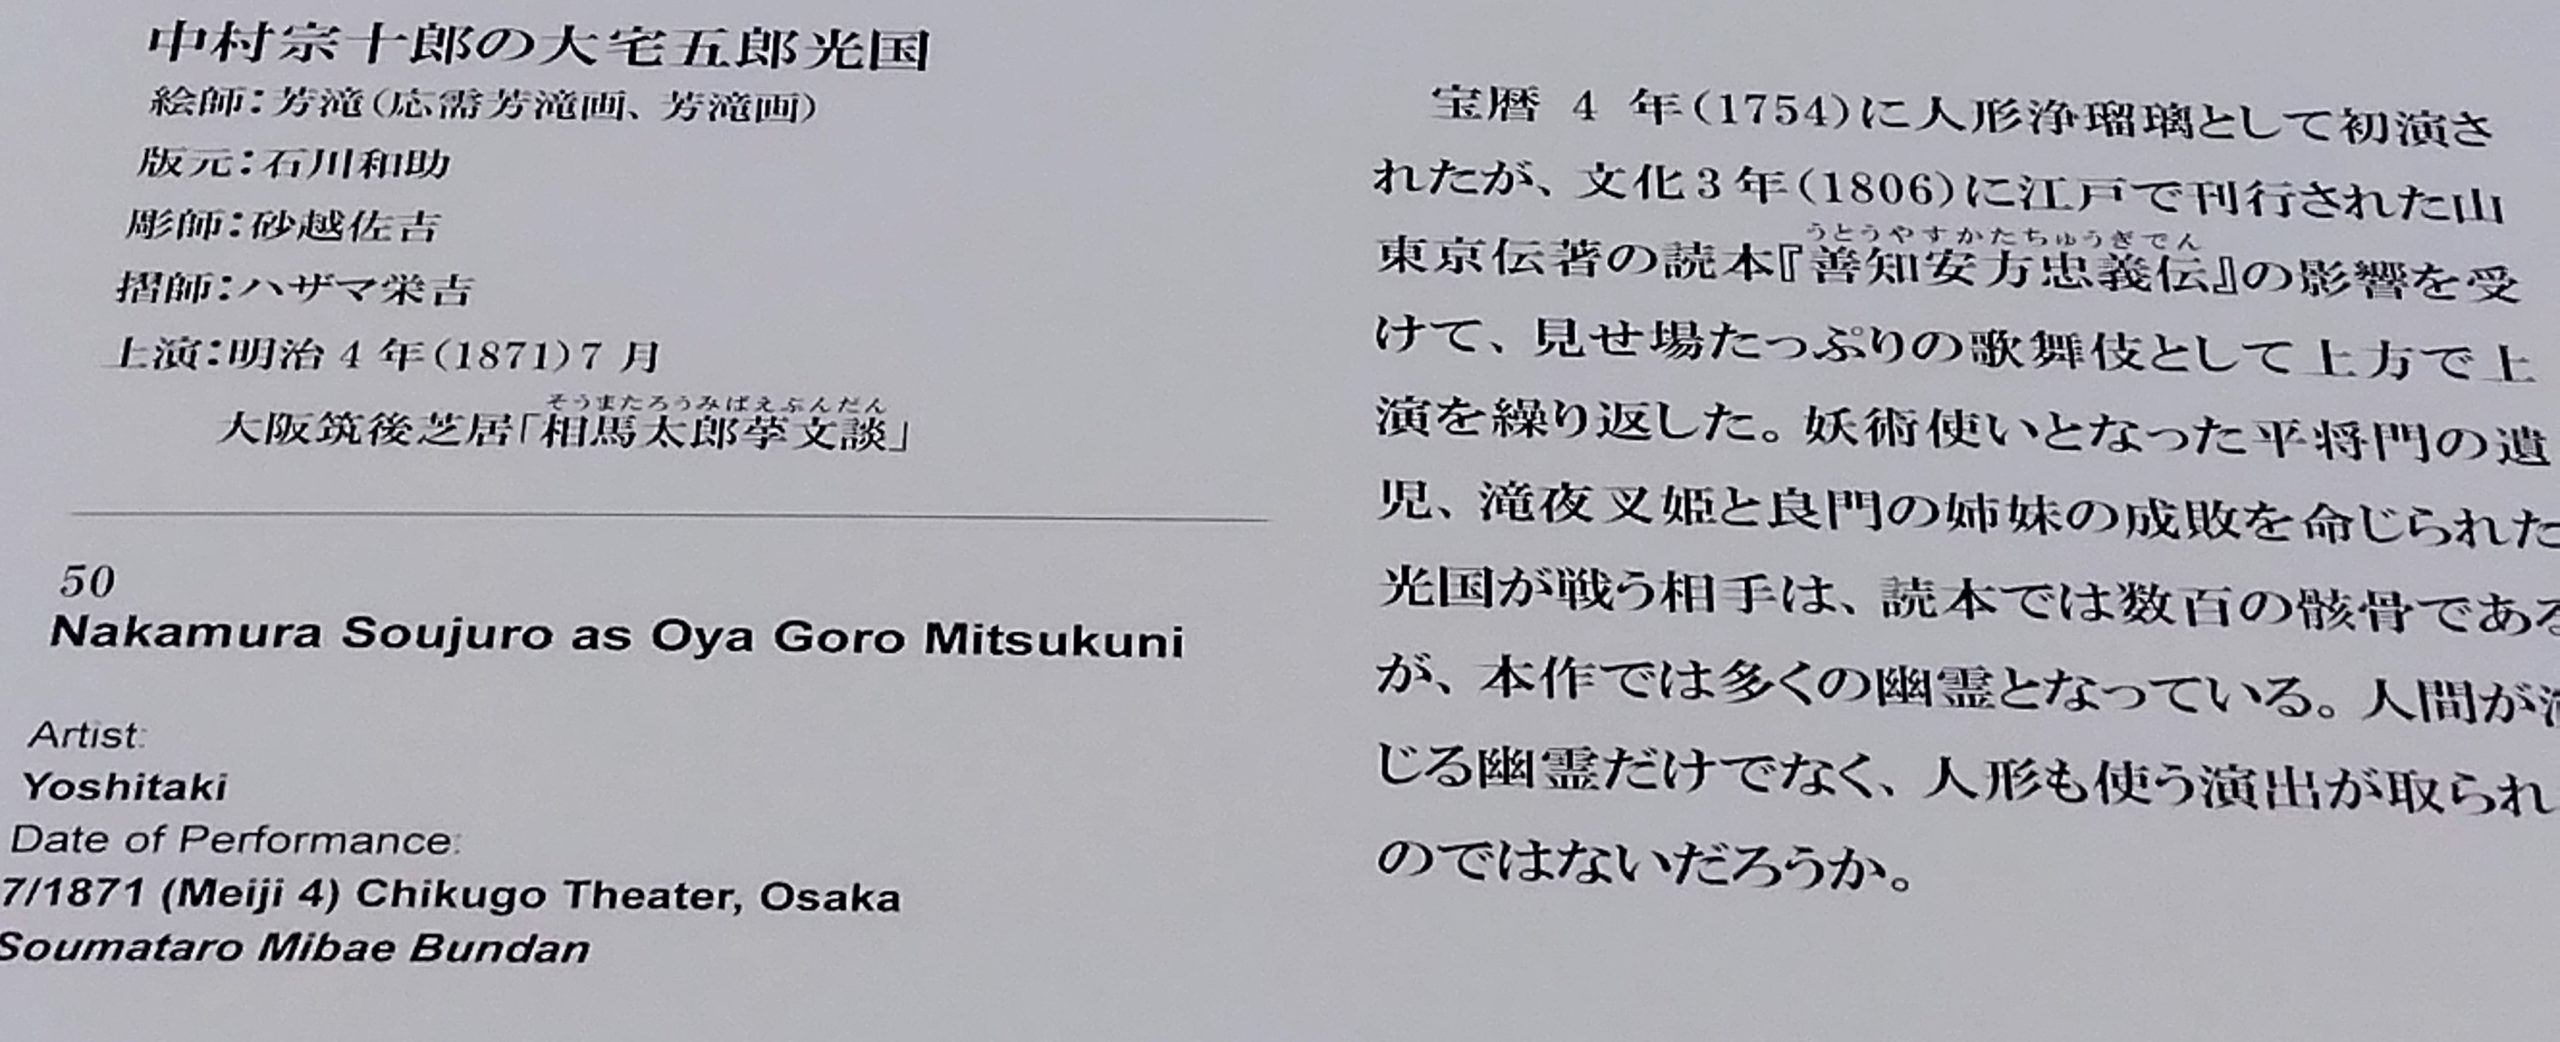 中村宗十郎の大宅五郎光国
絵師：芳滝（応需芳滝画、芳滝画）
版元：石川和助
彫師：砂越佐吉
摺師：ハザマ栄吉
上演：明治 4 年（1871）7 月
そうまたろうみばえぶんだん
大阪筑後芝居「相馬太郎莩文談」
50
Nakamura Soujuro as Oya Goro Mitsukuni
Artist:
Yoshitaki
Date of Performance:
7/1871 (Meiji 4) Chikugo Theater, Osaka
Soumataro Mibae Bundan
宝暦 4 年（1754）に人形浄瑠璃として初演さ
れたが、文化 3 年（1806）に江戸で刊行された山
うとうやすかたちゅうぎでん
東京伝著の読本『善知安方忠義伝』の影響を受
けて、見せ場たっぷりの歌舞伎として上方で上
演を繰り返した。妖術使いとなった平将門の遺
児、滝夜叉姫と良門の姉妹の成敗を命じられた
光国が戦う相手は、読本では数百の骸骨である
が、本作では多くの幽霊となっている。人間が演
じる幽霊だけでなく、人形も使う演出が取られ
のではないだろうか。